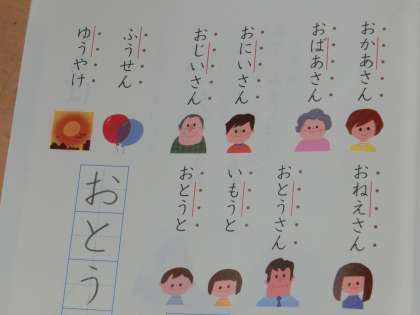 おかあさん
おばあさん
おにいさん
おじいさん
ふうせん
ゆうやけ
おねえさん
おとうさん
いもうと
おとうと
おとう